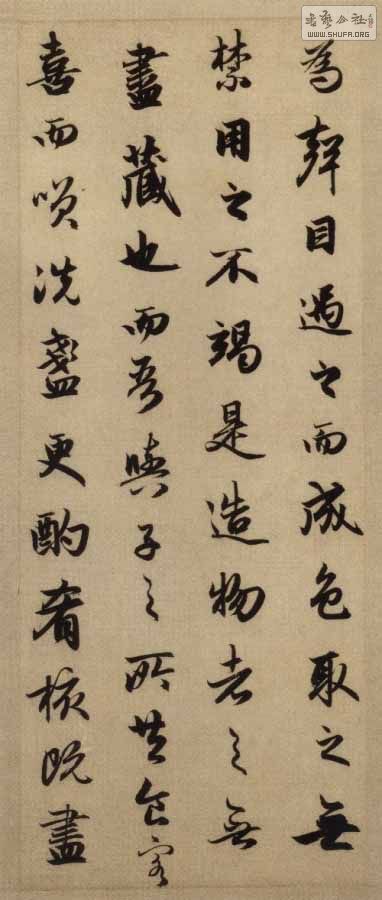 為聲目遇之而成色取之無
禁用之不竭是造物者之無
盡藏也而吾與子之所共食客
喜而笑洗盞更酌肴核既盡
書藝公社
WWW.SHUFA.ORG